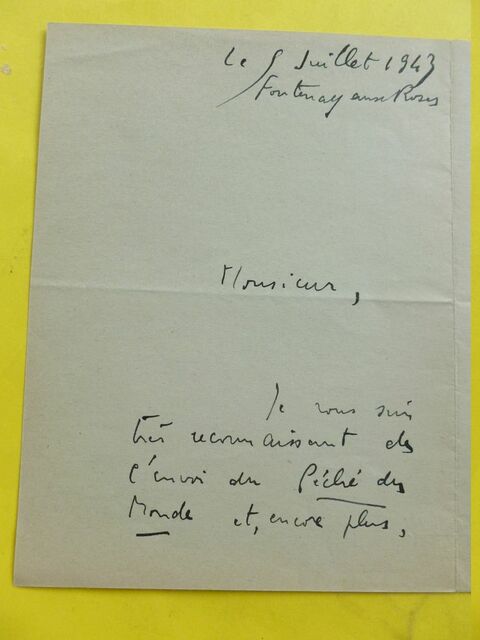 Le 5 Juillet 1943
Fontenay aux Roses
Monsieur,
Je vous suis
très reconnaissant de
l'envoi du Péché du
Monde et, encore plus,